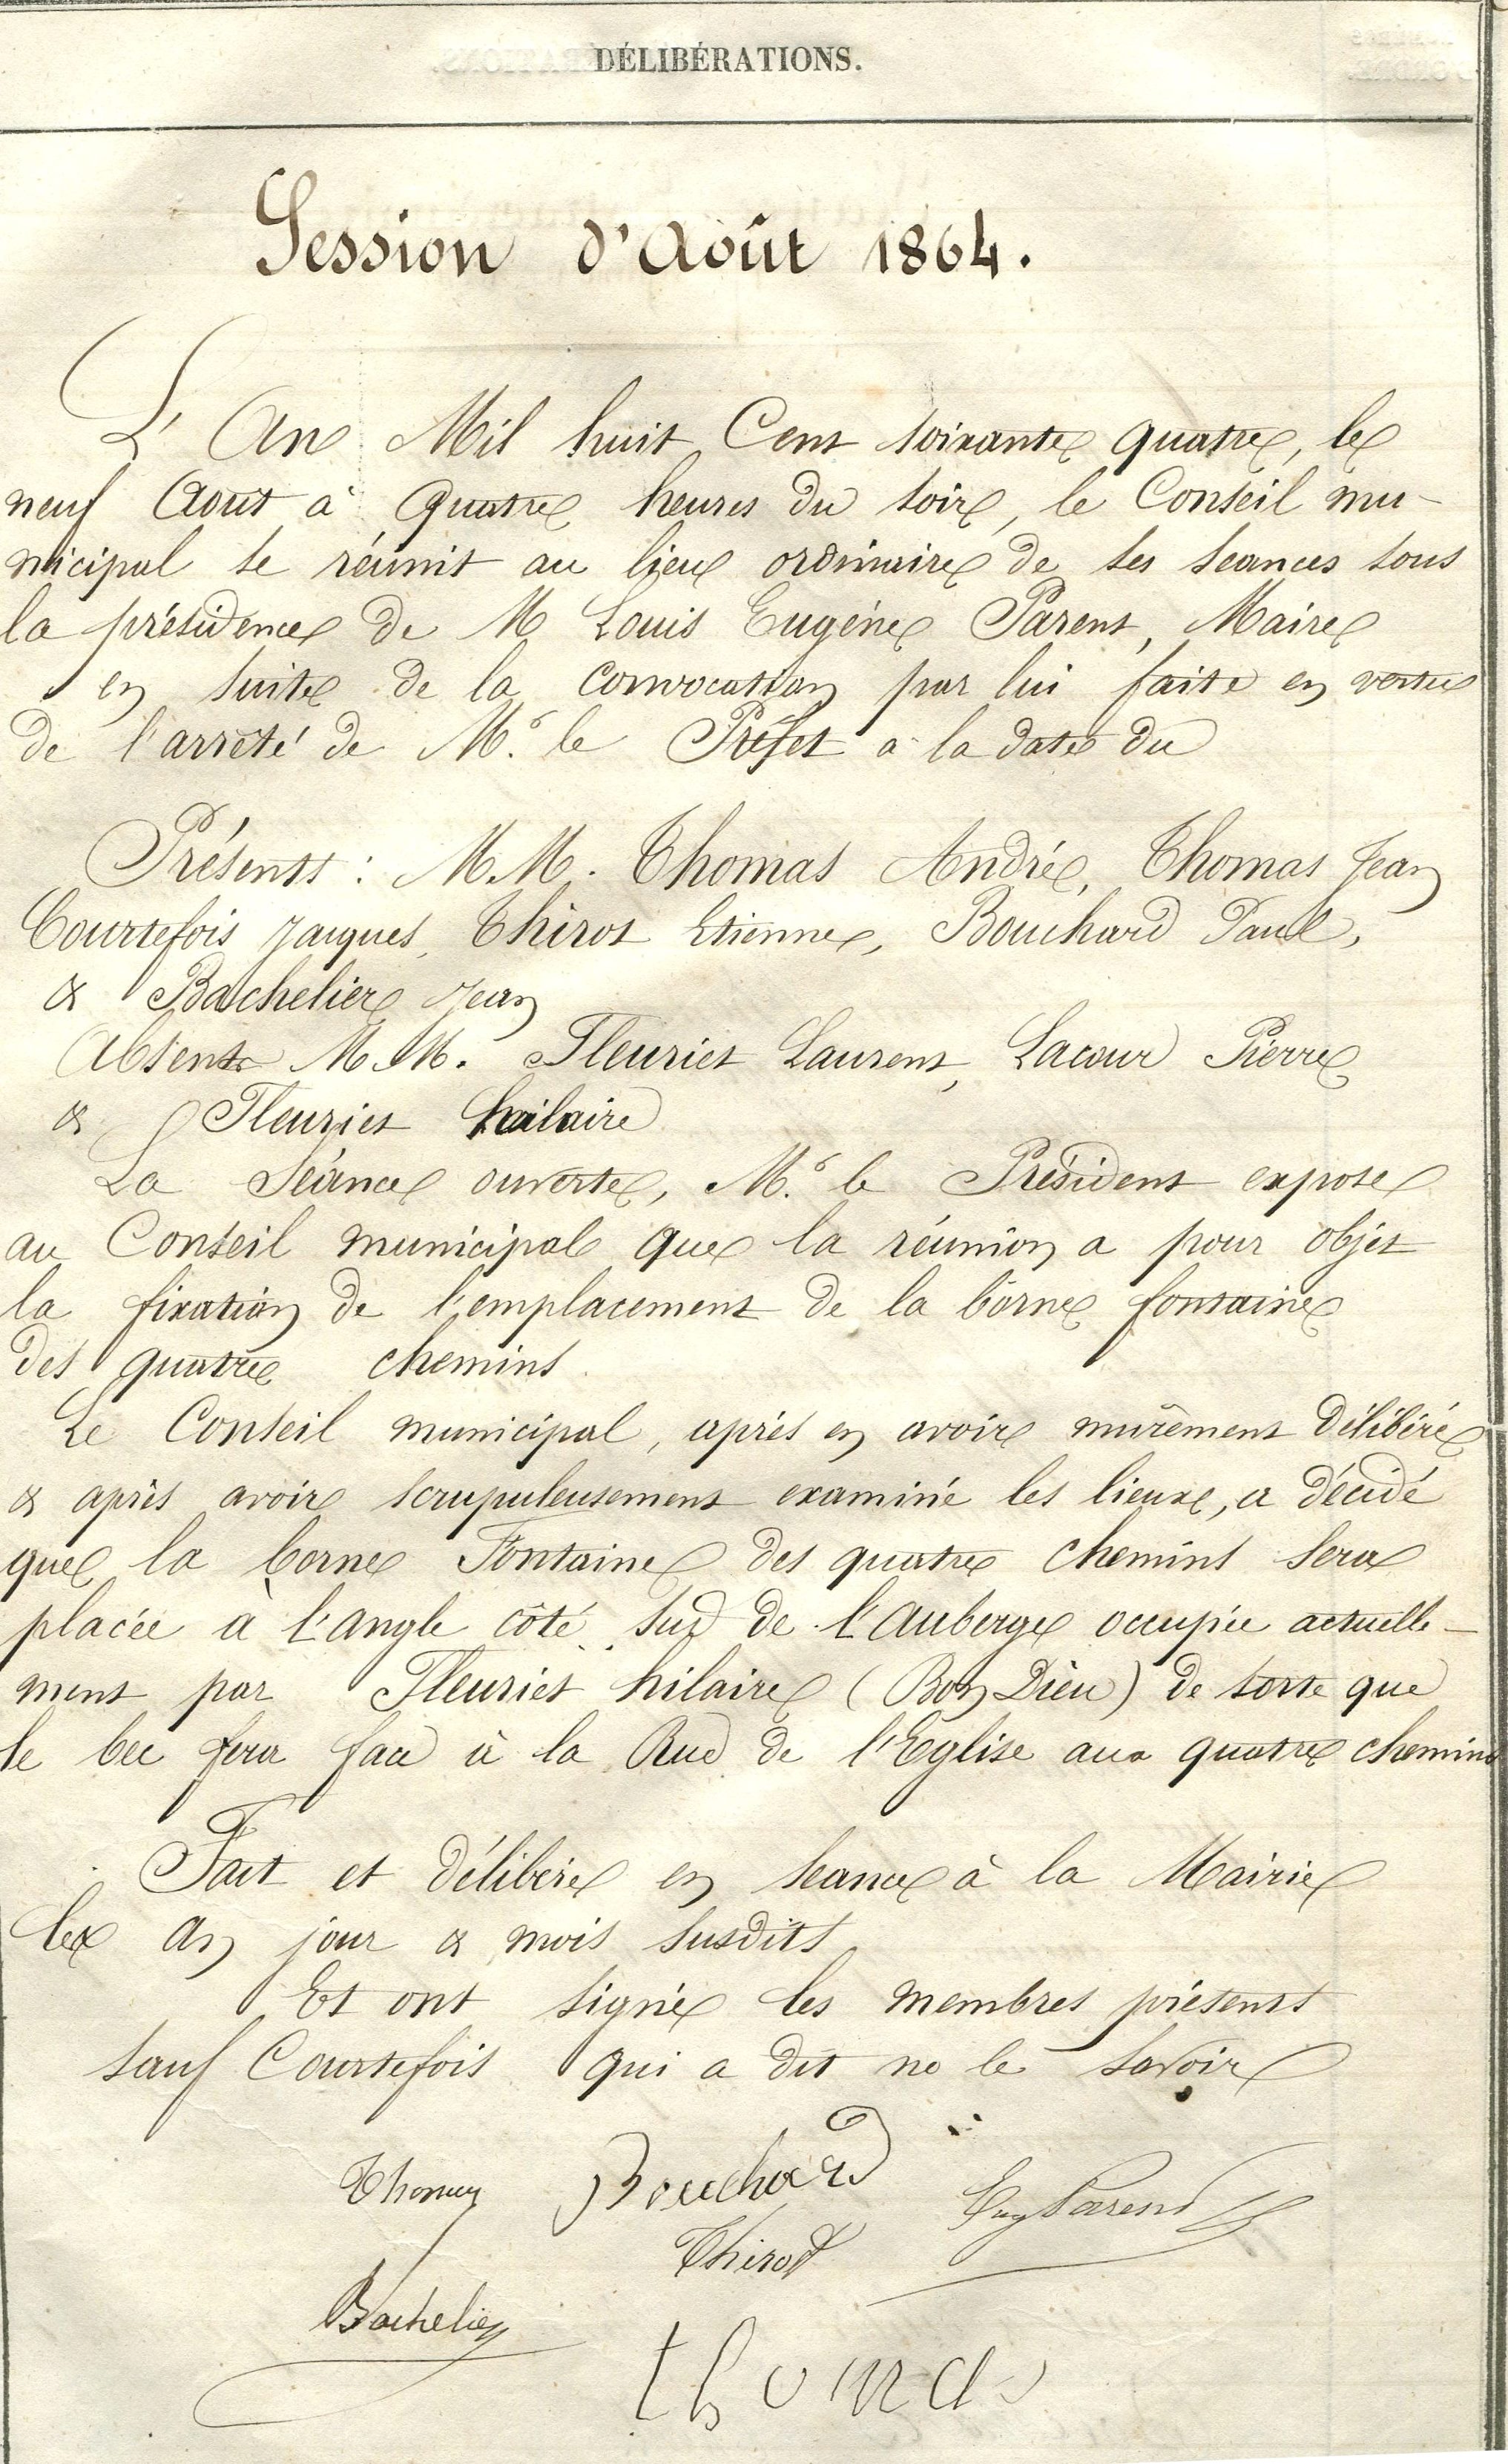 DÉLIBÉRATIONS.
Session d'Août 1864.
L'An Mil huit Cent soixante quatre, le
neuf Aout à Quatre heures du soir, le Conseil mu-
nicipal se réunit au lieu ordinaire de ses seances sous
la présidence de M Louis Eugène Parent, Maire
en suite de la convocation par lui faite en vertu
de l'arrêté de Mr. le Préfet a la date du
Présents : M.M. Thomas André, Thomas Jean
Courtefois Jacques, Thirot Etienne, Bouchard Paul,
& Bachelier Jean
Absents M.M. Fleuriet Laurent, Lacour Pierre
& Fleuriet hilaire
La Séance ouverte, Mr. le Président expose
au Conseil municipal que la réunion a pour objet
la fixation de l'emplacement de la borne fontaine
des quatre chemins.
Le Conseil municipal, après en avoir mûrement délibéré
& après avoir scrupuleusement examiné les lieux, a décidé
que la borne Fontaine des quatre chemins sera
placée à l'angle côté sud de l'auberge occupée actuelle-
ment par Fleuriet hilaire (Bon Dieu) de sorte que
le bec fera face à la Rue de l'Eglise aux quatre chemins
Fait et délibéré en seance à la Mairie
les an jour & mois susdits
Et ont signé les membres présents
sauf Courtefois qui a dit ne le savoir
Thomas Bouchard Eug Parent
Thirot
Bachelier
thomas